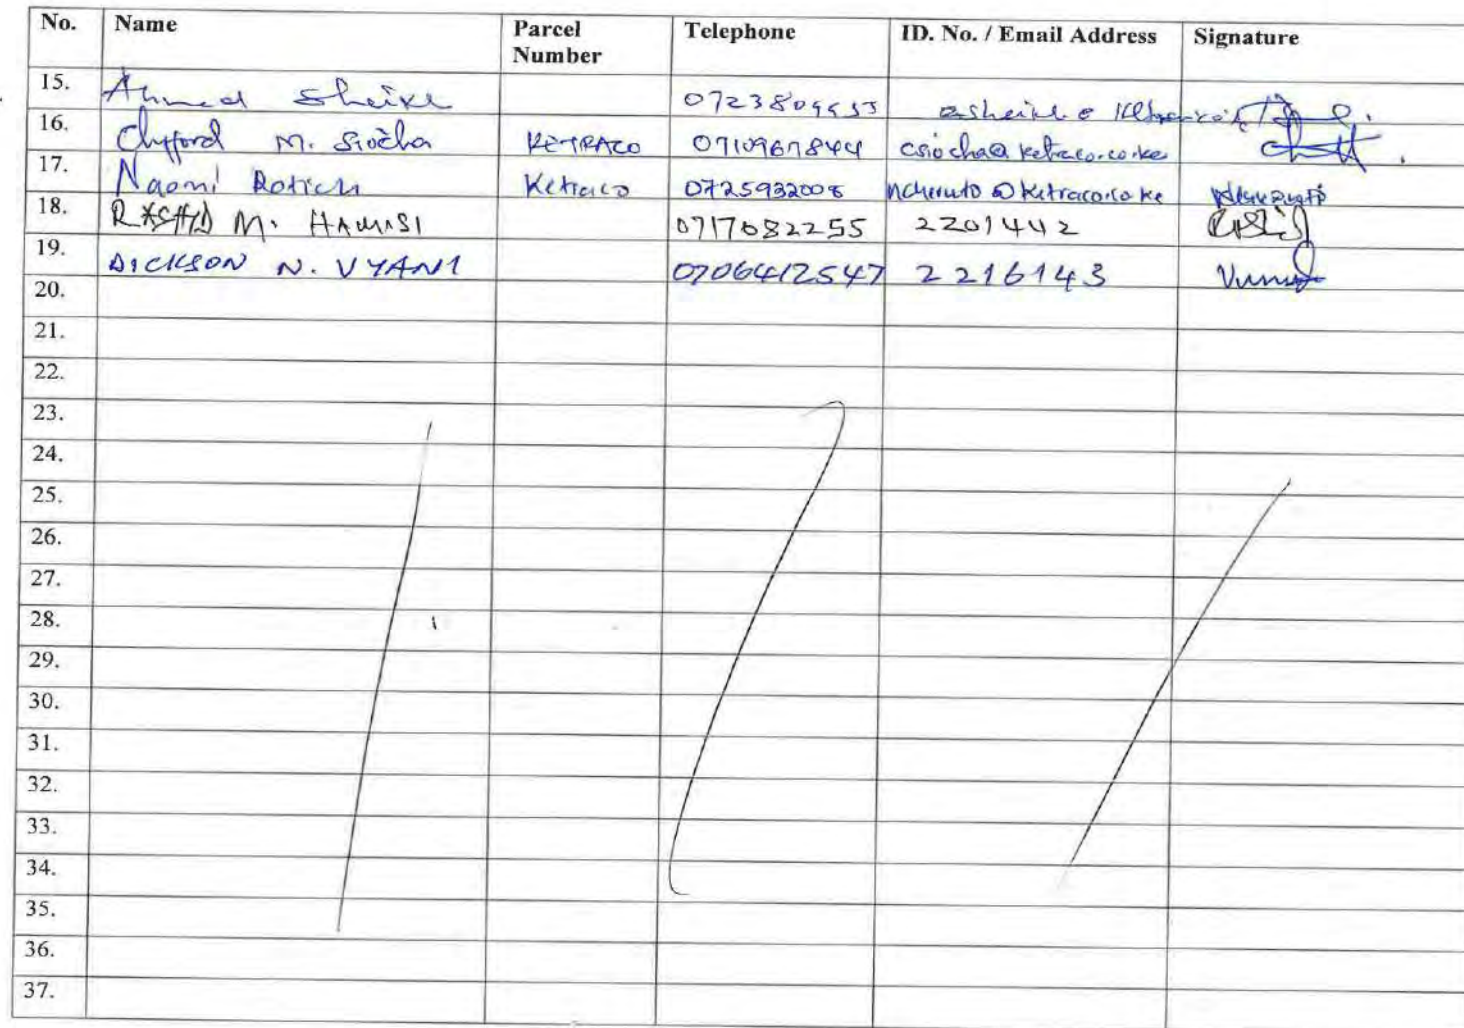 No. Name Parcel Number Telephone ID. No. / Email Address Signature
15. Ahmed Sheikh
16. Clyfford M. Siocha KETRACO 0710967844 csiocha@ketraco.co.ke
17. Naomi Rotich Ketraco 0725932008 ncheruto@ketraco.co.ke
18. RASHID M. HAMISI 0717082255 2201442
19. DICKSON N. VYANI 0706412547 2216143
20.
21.
22.
23.
24.
25.
26.
27.
28.
29.
30.
31.
32.
33.
34.
35.
36.
37.